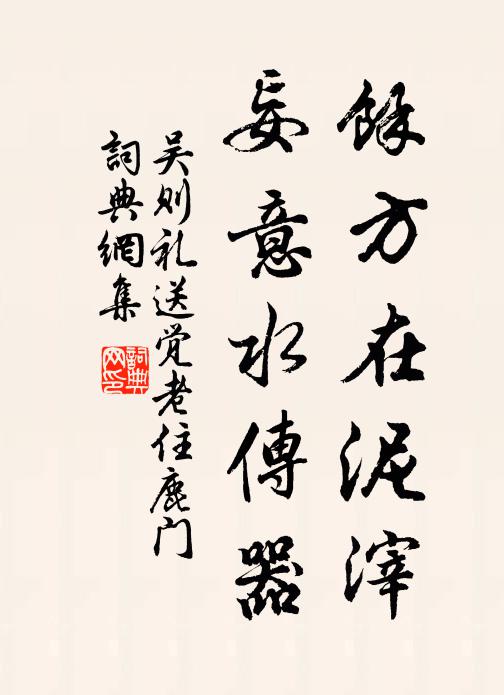 餘方在泥滓
妄意水傳器
吴则礼送觉老住鹿门
詞典網集
詞典
网印